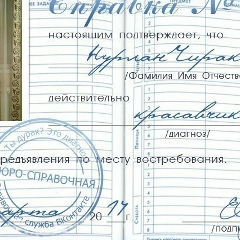 Справка №
настоящим подтверждает, что
Нурлан Чирак
/Фамилия Имя Отчеств
действительно
красавчик
/диагноз/
предъявления по месту востребования.
Ты дурак? Это диагноз
БЮРО-СПРАВОЧНАЯ
служба ВКонтакте
марта 20 14
/подпи